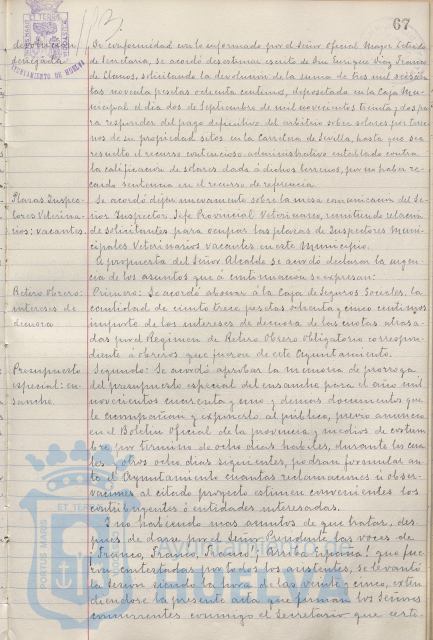 67
devolución
denegada
De conformidad con lo informado por el Señor Oficial Mayor Letrado
de Secretaría, se acordó desestimar escrito de Don Enrique Díaz Franco
de Llanos, solicitando la devolución de la suma de tres mil
tas noventa pesetas ochenta centimos, depositada en la Caja Mu-
nicipal el día dos de Septiembre de mil novecientos treinta y dos, pa
ra responder del pago definitivo del arbitrio sobre solares por terre
nos de su propiedad sitos en la Carretera de Sevilla, hasta que sea
resuelto el recurso contencioso administrativo entablado contra
la calificación de solares dada á dichos terrenos, por no haber re-
caido sentencia en el recurso de referencia.
Plazas Inspec-
tores Veterina-
rios: vacantes.
Se acordó dejar nuevamente sobre la mesa comunicación del Se-
ñor Inspector Jefe Provincial Veterinario, remitiendo relación
de solicitantes para ocupar las plazas de Inspectores Muni-
cipales Veterinarios vacantes en este Municipio.
A propuesta del Señor Alcalde se acordó declarar la urgen
cia de los asuntos que á continuación se expresan:
Retiro Obrero:
intereses de
demora
Primero: Se acordó abonar á la Caja de Seguros Sociales, la
cantidad de ciento trece pesetas ochenta y cinco centimos
importe de los intereses de demora de las cuotas atrasa-
das por el Regimen de Retiro Obrero Obligatorio correspon-
diente á obreros que fueron de este Ayuntamiento.
Presupuesto
especial: en-
sanche.
Segundo: Se acordó aprobar la memoria de prorroga
del presupuesto especial del ensanche para el año mil
novecientos cuarenta y uno y demas documentos que
le acompañan y exponerlo al público, previo anuncio
en el Boletin Oficial de la provincia y medios de costum
bre por termino de ocho días habiles, durante los cua
les y otros ocho días siguientes, podran formular an
te el Ayuntamiento cuantas reclamaciones u obser-
vaciones al citado proyecto estimen convenientes los
contribuyentes ó entidades interesadas.
Y no habiendo mas asuntos de que tratar, des-
pués de darse por el Señor Presidente las voces de
¡Franco, Franco, Franco!, ¡Arriba España! que fue-
ron contestadas por todos los asistentes, se levantó
la sesión siendo la hora de las veinte y cinco, exten
diendose la presente acta que firman los Señores
concurrentes conmigo el Secretario que certi-